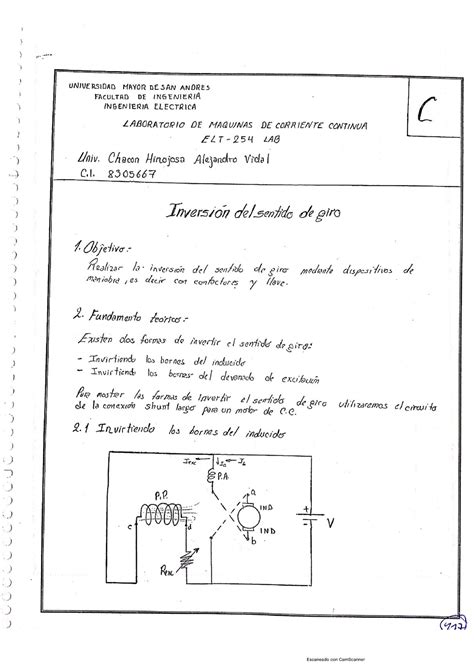 UNIVERSIDAD MAYOR DE SAN ANDRES
FACULTAD DE INGENIERIA
INGENIERIA ELECTRICA
C
LABORATORIO DE MAQUINAS DE CORRIENTE CONTINUA
ELT-254 LAB
Univ. Chacon Hinojosa Alejandro Vidal
C.I. 8305667
Inversión del sentido de giro
1. Objetivo:-
Realizar la inversión del sentido de giro mediante dispositivos de
maniobra, es decir con contactores y llave.
2. Fundamento teorico:-
Existen dos formas de invertir el sentido de giro:
- Invirtiendo los bornes del inducido
- Invirtiendo los bornes del devanado de excitación
Para mostrar las formas de invertir el sentido de giro utilizaremos el circuito
de la conexión shunt largo para un motor de C.C.
2.1 Invirtiendo los bornes del inducido
Iexc Ia
P.A.
a
P.P.
IND
+
c d
IND
- V
b
Rexc
Escaneado con CamScanner